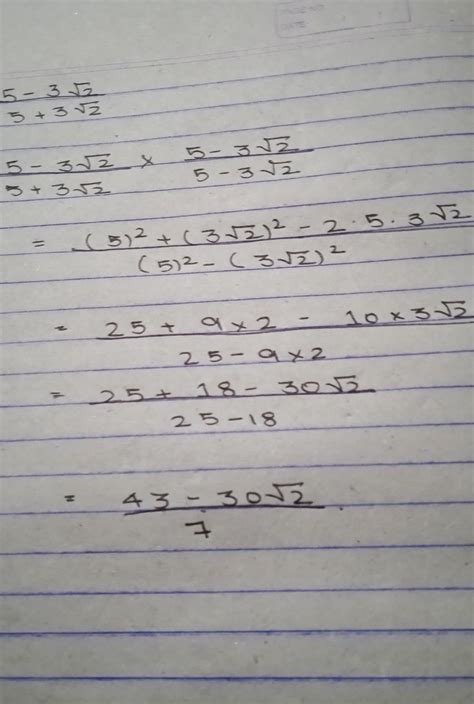 5 - 3√2 / 5 + 3√2
5 - 3√2 / 5 + 3√2 × 5 - 3√2 / 5 - 3√2
= (5)² + (3√2)² - 2 · 5 · 3√2 / (5)² - (3√2)²
= 25 + 9 × 2 - 10 × 3√2 / 25 - 9 × 2
= 25 + 18 - 30√2 / 25 - 18
= 43 - 30√2 / 7